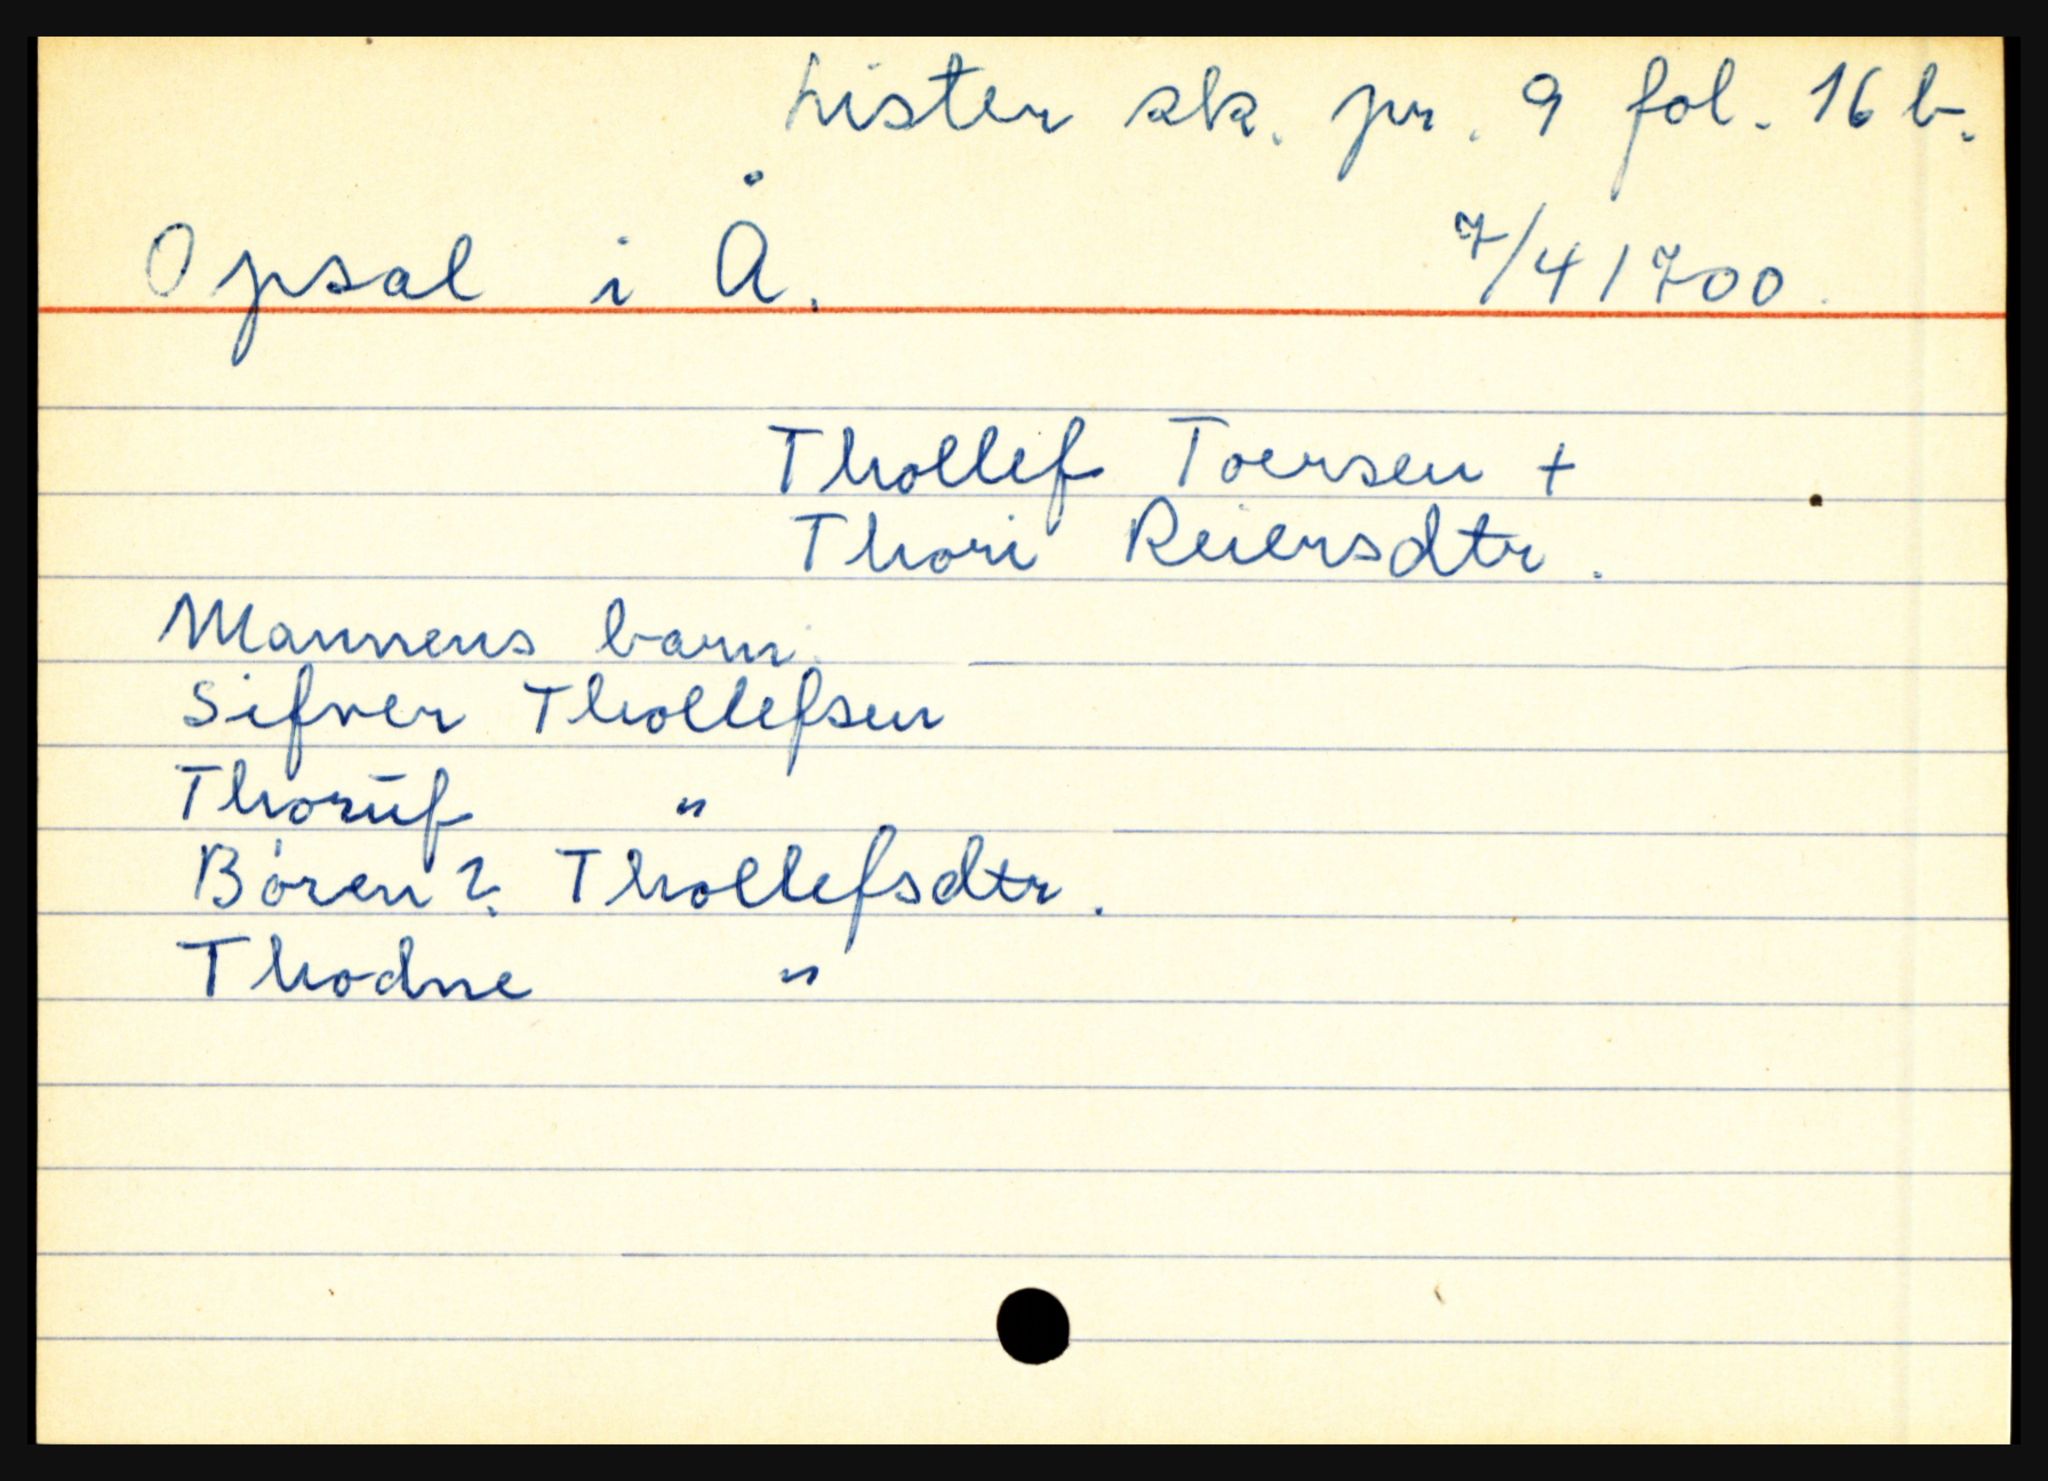 Lister sk. pr. 9 fol. 16 b.
Opsal i Å. 7/4 1700.
Thollef Toersen +
Thori Reiersdtr.
Mannens barn.
Sifver Thollefsen
Thoruf "
Bóren? Thollefsdtr.
Thodne "